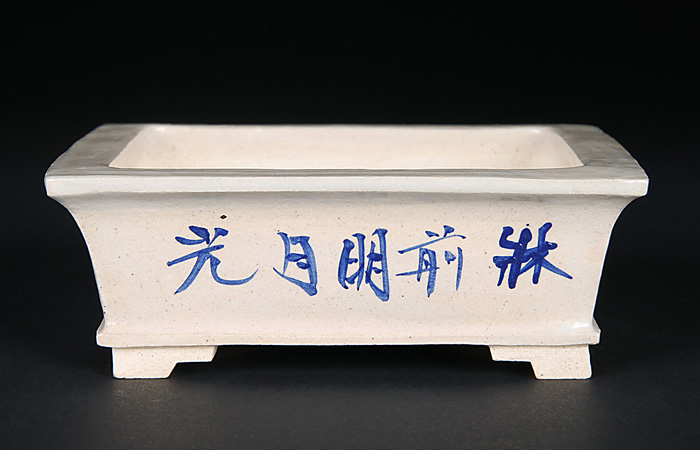 牀前明月光